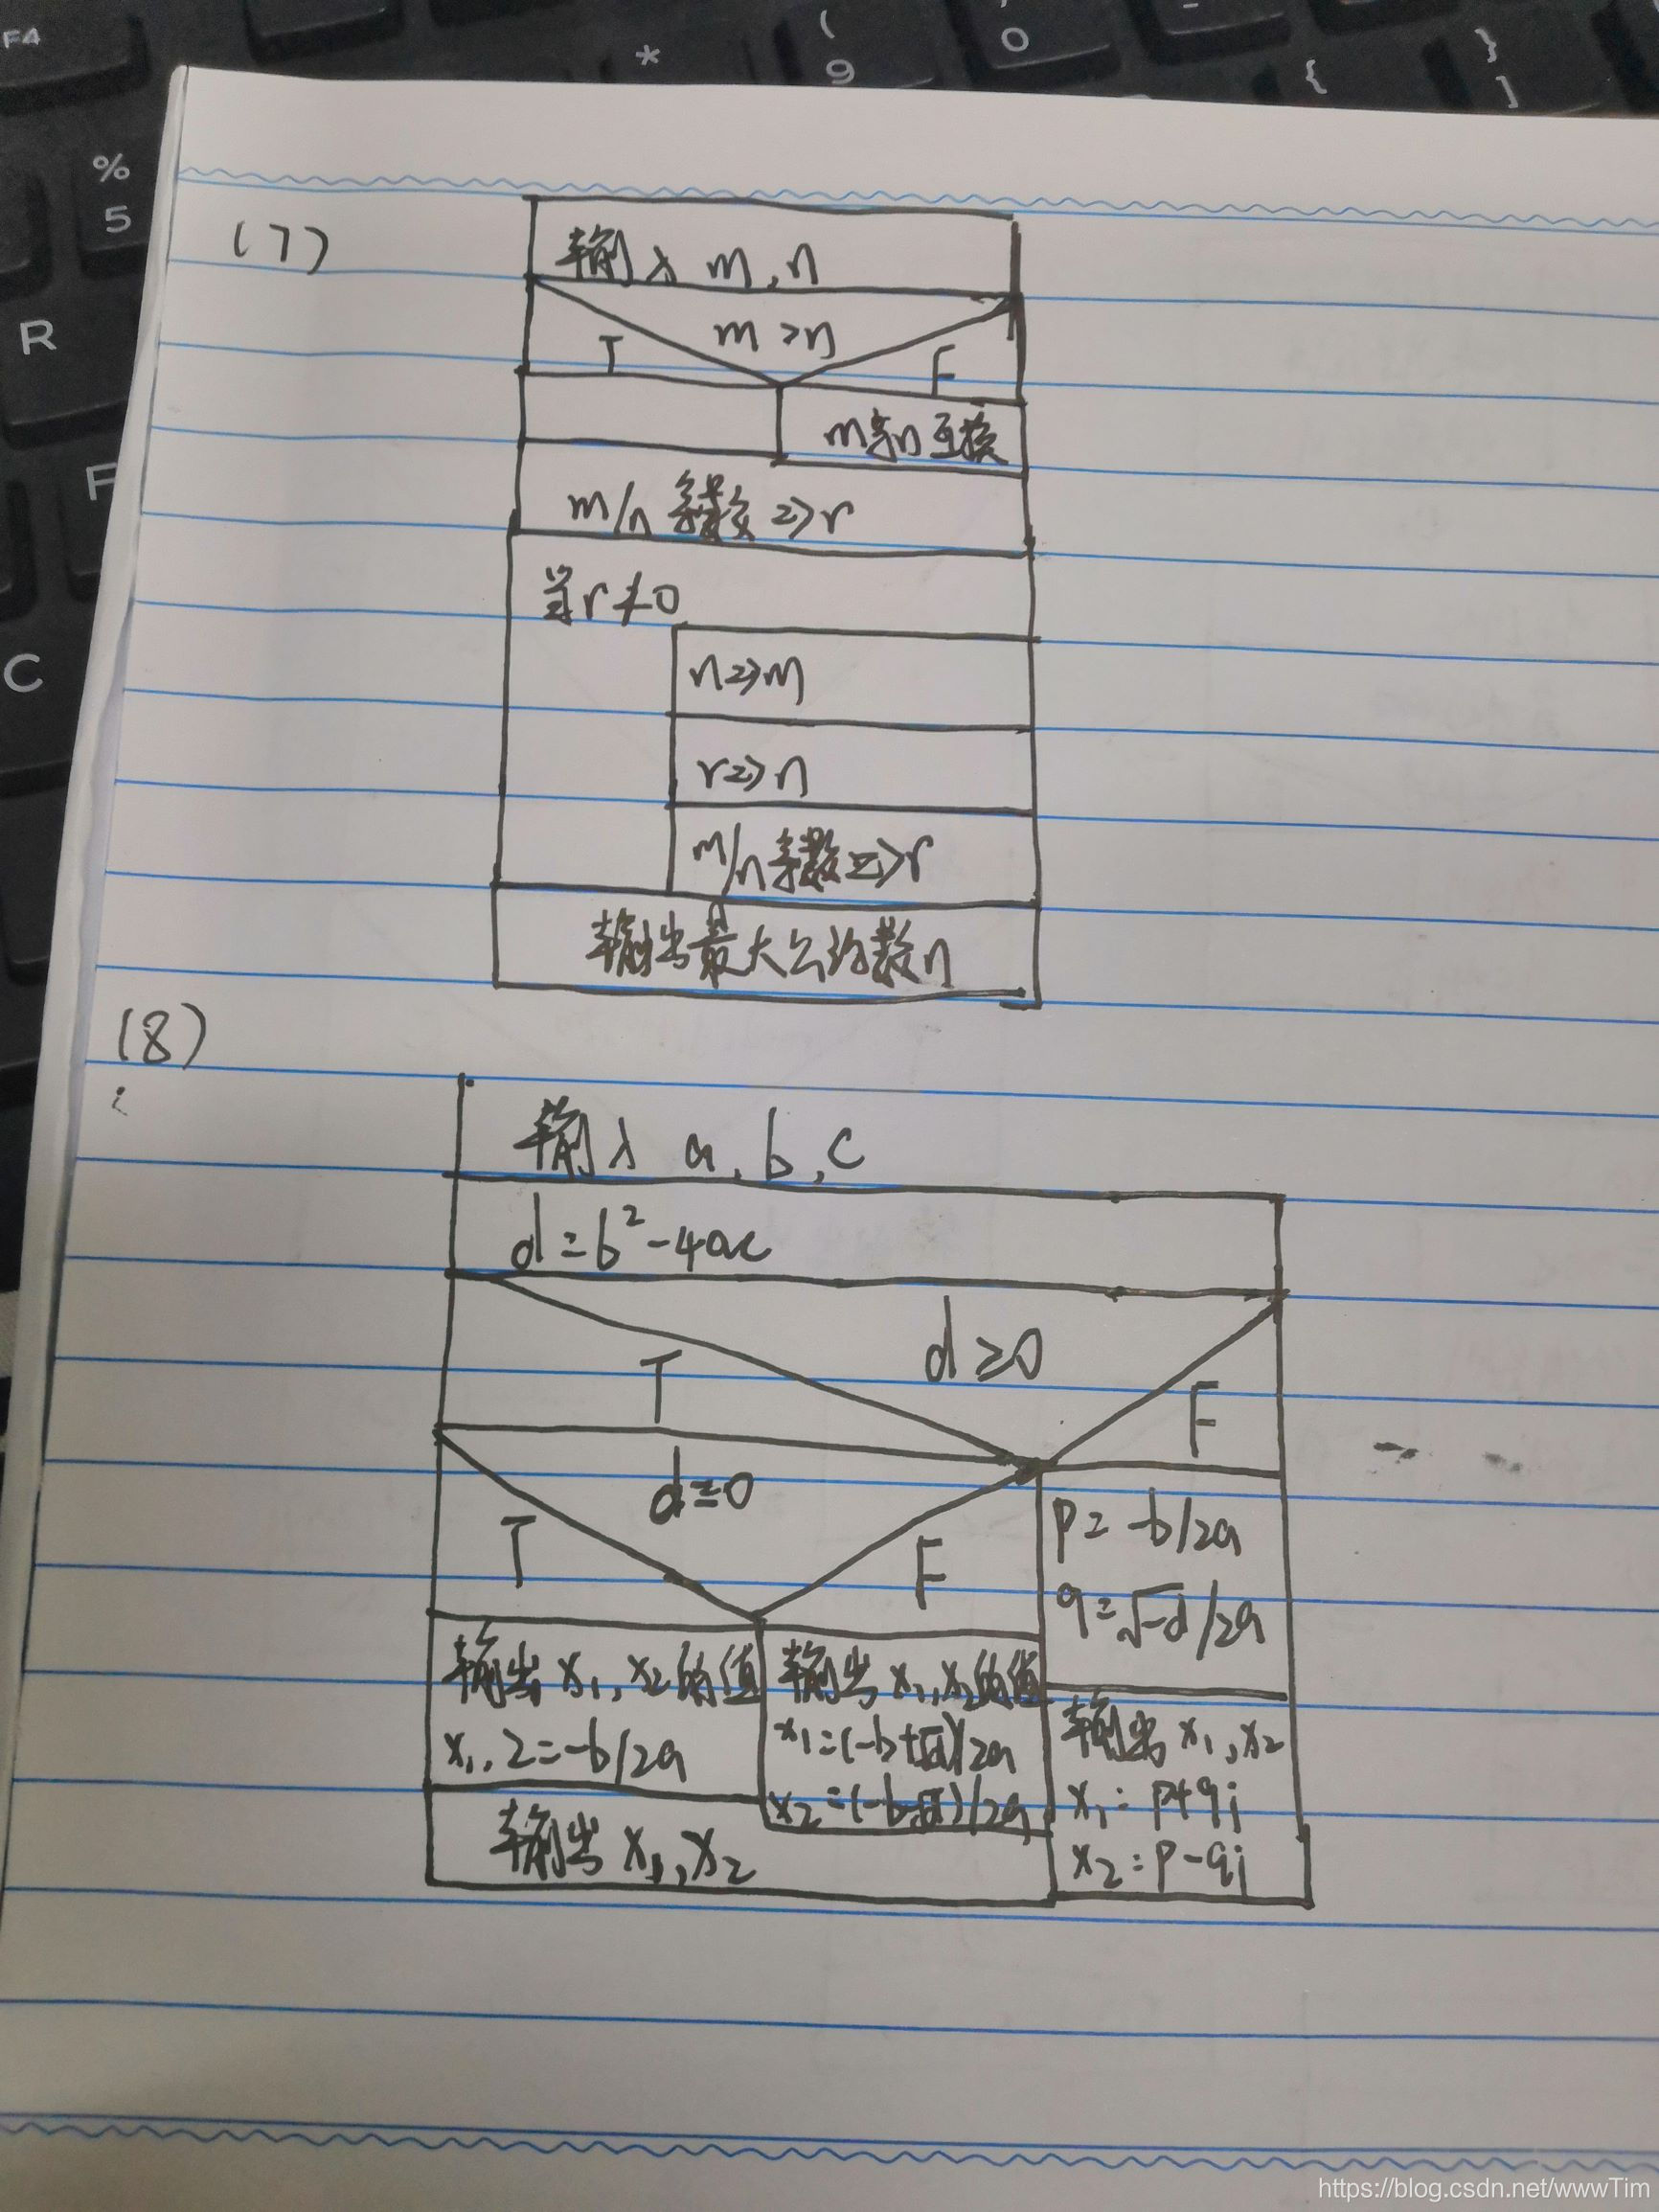 F4
*
(
9
)
0
-
{
}
]
%
5
R
F
C
(7)
输入 m,n
m>n
T
F
m和n互换
m/n余数=>r
当r≠0
n=>m
r=>n
m/n余数=>r
输出最大公约数n
(8)
输入 a,b,c
d=b²-4ac
d≥0
T
F
d=0
T
F
p=-b/2a
q=√-d/2a
输出x₁,x₂的值
x₁,2=-b/2a
输出x₁,x₂的值
x₁=(-b+√d)/2a
x₂=(-b-√d)/2a
输出x₁,x₂
x₁=p+qi
x₂=p-qi
输出x₁,x₂
https://blog.csdn.net/wwwTim